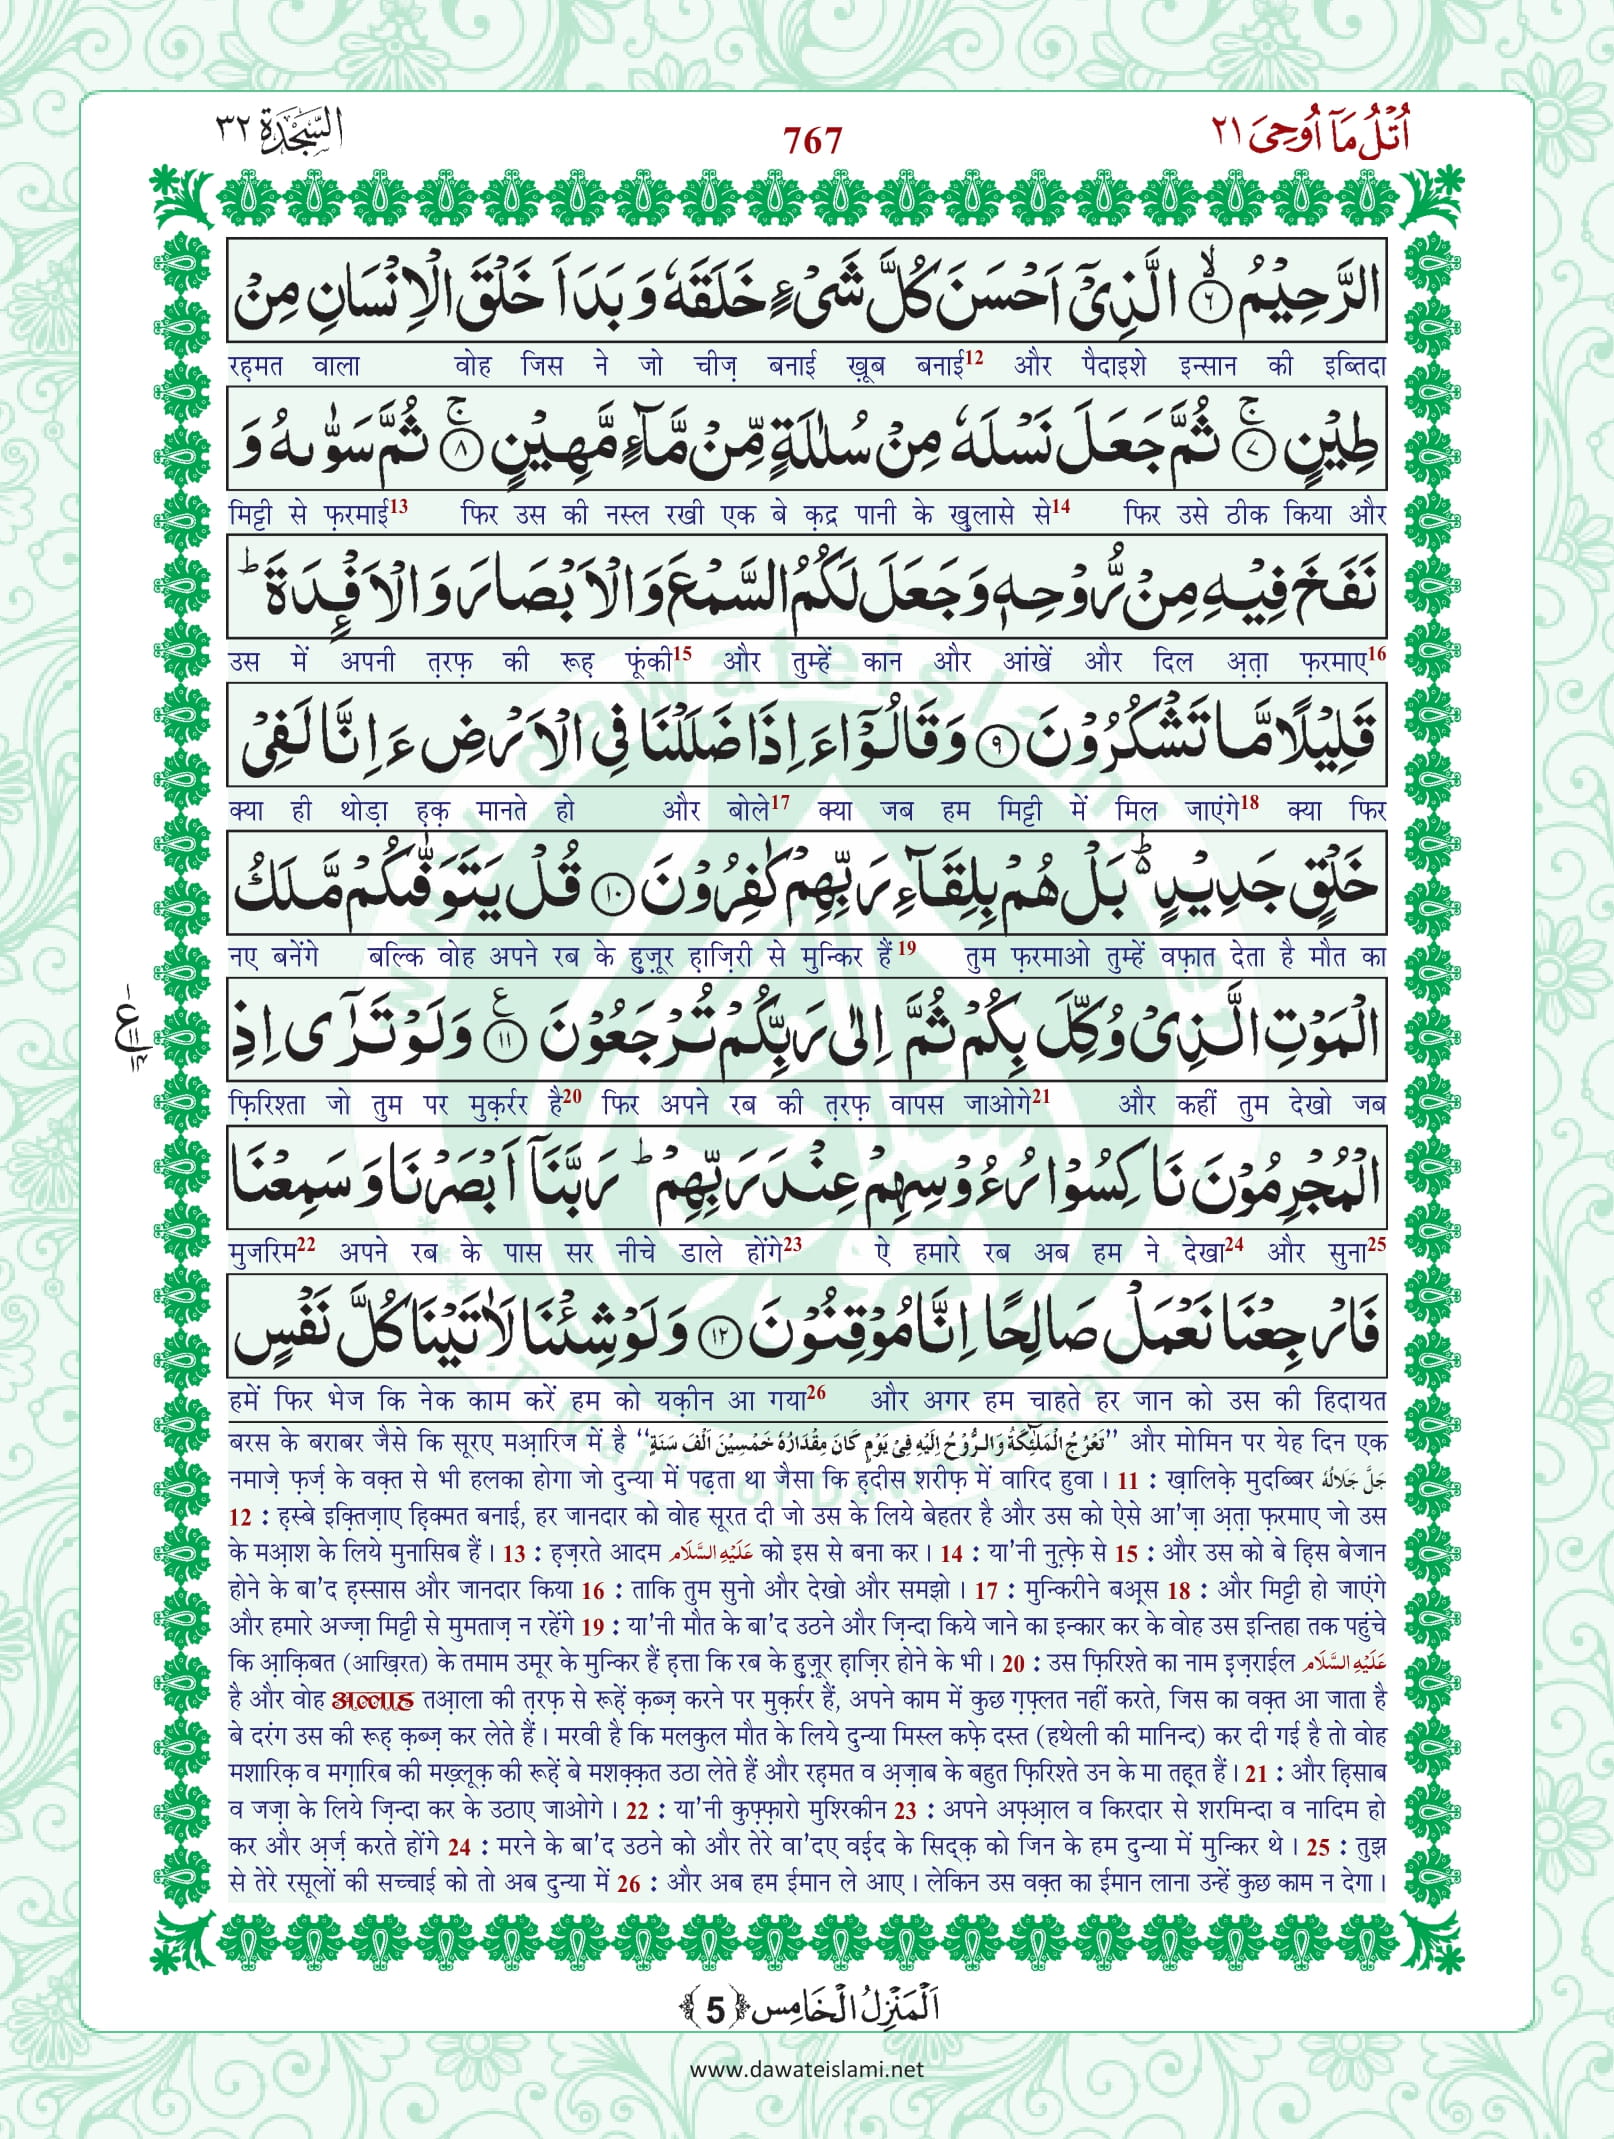 السَّجْدَة ٣٢
767
اُتْلُ مَاۤ اُوْحِیَ ٢١
الرَّحِیْمُ ۙ﴿٦﴾ الَّذِیْۤ اَحْسَنَ كُلَّ شَیْءٍ خَلَقَهٗ وَ بَدَاَ خَلْقَ الْاِنْسَانِ مِنْ
रह़मत वाला वोह जिस ने जो चीज़ बनाई ख़ूब बनाई12 और पैदाइशे इन्सान की इब्तिदा
طِیْنٍ ۚ﴿٧﴾ ثُمَّ جَعَلَ نَسْلَهٗ مِنْ سُلٰلَةٍ مِّنْ مَّآءٍ مَّهِیْنٍ ۚ﴿٨﴾ ثُمَّ سَوّٰىهُ وَ
मिट्टी से फ़रमाई13 फिर उस की नस्ल रखी एक बे क़द्र पानी के खुलासे से14 फिर उसे ठीक किया और
نَفَخَ فِیْهِ مِنْ رُّوْحِهٖ وَ جَعَلَ لَكُمُ السَّمْعَ وَ الْاَبْصَارَ وَ الْاَفْـِٕدَةَ ؕ
उस में अपनी त़रफ़ की रूह फूंकी15 और तुम्हें कान और आंखें और दिल अ़त़ा फ़रमाए16
قَلِیْلًا مَّا تَشْكُرُوْنَ ﴿٩﴾ وَ قَالُوْۤا ءَاِذَا ضَلَلْنَا فِی الْاَرْضِ ءَاِنَّا لَفِیْ
क्या ही थोड़ा ह़क़ मानते हो और बोले17 क्या जब हम मिट्टी में मिल जाएंगे18 क्या फिर
خَلْقٍ جَدِیْدٍ ؕ۬ بَلْ هُمْ بِلِقَآءِ رَبِّهِمْ كٰفِرُوْنَ ﴿١٠﴾ قُلْ یَتَوَفّٰىكُمْ مَّلَكُ
नए बनेंगे बल्कि वोह अपने रब के हुज़ूर ह़ाज़िरी से मुन्किर हैं19 तुम फ़रमाओ तुम्हें वफ़ात देता है मौत का
الْمَوْتِ الَّذِیْ وُكِّلَ بِكُمْ ثُمَّ اِلٰى رَبِّكُمْ تُرْجَعُوْنَ ۠﴿١١﴾ وَ لَوْ تَرٰۤى اِذِ
١ ع ١١ ١٤
फ़िरिश्ता जो तुम पर मुक़र्रर है20 फिर अपने रब की त़रफ़ वापस जाओगे21 और कहीं तुम देखो जब
الْمُجْرِمُوْنَ نَاكِسُوْا رُءُوْسِهِمْ عِنْدَ رَبِّهِمْ ؕ رَبَّنَاۤ اَبْصَرْنَا وَ سَمِعْنَا
मुजरिम22 अपने रब के पास सर नीचे डाले होंगे23 ऐ हमारे रब अब हम ने देखा24 और सुना25
فَارْجِعْنَا نَعْمَلْ صَالِحًا اِنَّا مُوْقِنُوْنَ ﴿١٢﴾ وَ لَوْ شِئْنَا لَاٰتَیْنَا كُلَّ نَفْسٍ
हमें फिर भेज कि नेक काम करें हम को यक़ीन आ गया26 और अगर हम चाहते हर जान को उस की हिदायत
बरस के बराबर जैसे कि सूरए मआ़रिज में है ''تَعْرُجُ الْمَلٰٓئِكَةُ وَالرُّوْحُ اِلَیْهِ فِیْ یَوْمٍ كَانَ مِقْدَارُهٗ خَمْسِیْنَ اَلْفَ سَنَةٍ'' और मोमिन पर येह दिन एक
नमाज़े फ़र्ज़ के वक़्त से भी हलका होगा जो दुन्या में पढ़ता था जैसा कि ह़दीस शरीफ़ में वारिद हुवा। 11 : ख़ालिक़े मुदब्बिर جَلَّ جَلَالُهٗ
12 : ह़स्बे इक़्तिज़ाए ह़िक्मत बनाई, हर जानदार को वोह सूरत दी जो उस के लिये बेहतर है और उस को ऐसे आ'ज़ा अ़त़ा फ़रमाए जो उस
के मआ़श के लिये मुनासिब हैं। 13 : ह़ज़रते आदम عَلَیْهِ السَّلَام को इस से बना कर। 14 : या'नी नुत़्फ़े से 15 : और उस को बे हि़स बेजान
होने के बा'द ह़स्सास और जानदार किया 16 : ताकि तुम सुनो और देखो और समझो। 17 : मुन्किरीने बअ़्स 18 : और मिट्टी हो जाएंगे
और हमारे अज्ज़ा मिट्टी से मुमताज़ न रहेंगे 19 : या'नी मौत के बा'द उठने और ज़िन्दा किये जाने का इन्कार कर के वोह उस इन्तिहा तक पहुंचे
कि आ़क़िबत (आख़िरत) के तमाम उमूर के मुन्किर हैं ह़त्ता कि रब के हुज़ूर ह़ाज़िर होने के भी। 20 : उस फ़िरिश्ते का नाम इज़राईल عَلَیْهِ السَّلَام
है और वोह अल्लाह तआ़ला की त़रफ़ से रूह़ें क़ब्ज़ करने पर मुक़र्रर हैं, अपने काम में कुछ ग़फ़्लत नहीं करते, जिस का वक़्त आ जाता है
बे दरंग उस की रूह़ क़ब्ज़ कर लेते हैं। मरवी है कि मलकुल मौत के लिये दुन्या मिस्ल कफ़े दस्त (हथेली की मानिन्द) कर दी गई है तो वोह
मशारिक़ व मग़ारिब की मख़्लूक़ की रूह़ें बे मशक़्क़त उठा लेते हैं और रह़मत व अ़ज़ाब के बहुत फ़िरिश्ते उन के मा तह़्त हैं। 21 : और ह़िसाब
व जज़ा के लिये ज़िन्दा कर के उठाए जाओगे। 22 : या'नी कुफ़्फ़ारो मुश्रिकीन 23 : अपने अफ़्आ़ल व किरदार से शरमिन्दा व नादिम हो
कर और अ़र्ज़ करते होंगे 24 : मरने के बा'द उठने को और तेरे वा'दए वई़द के सिद्क़ को जिन के हम दुन्या में मुन्किर थे। 25 : तुझ
से तेरे रसूलों की सच्चाई को तो अब दुन्या में 26 : और अब हम ईमान ले आए। लेकिन उस वक़्त का ईमान लाना उन्हें कुछ काम न देगा।
اَلْمَنْزِلُ الْخَامِس ﴿5﴾
www.dawateislami.net